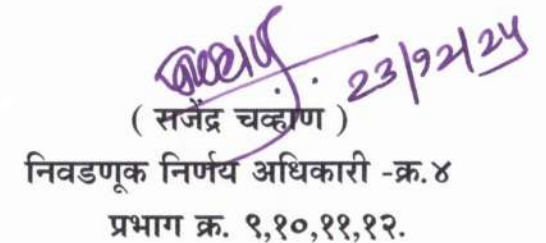 २३/१२/२५
( सजेंद्र चव्हाण )
निवडणूक निर्णय अधिकारी -क्र.४
प्रभाग क्र. ९,१०,११,१२.